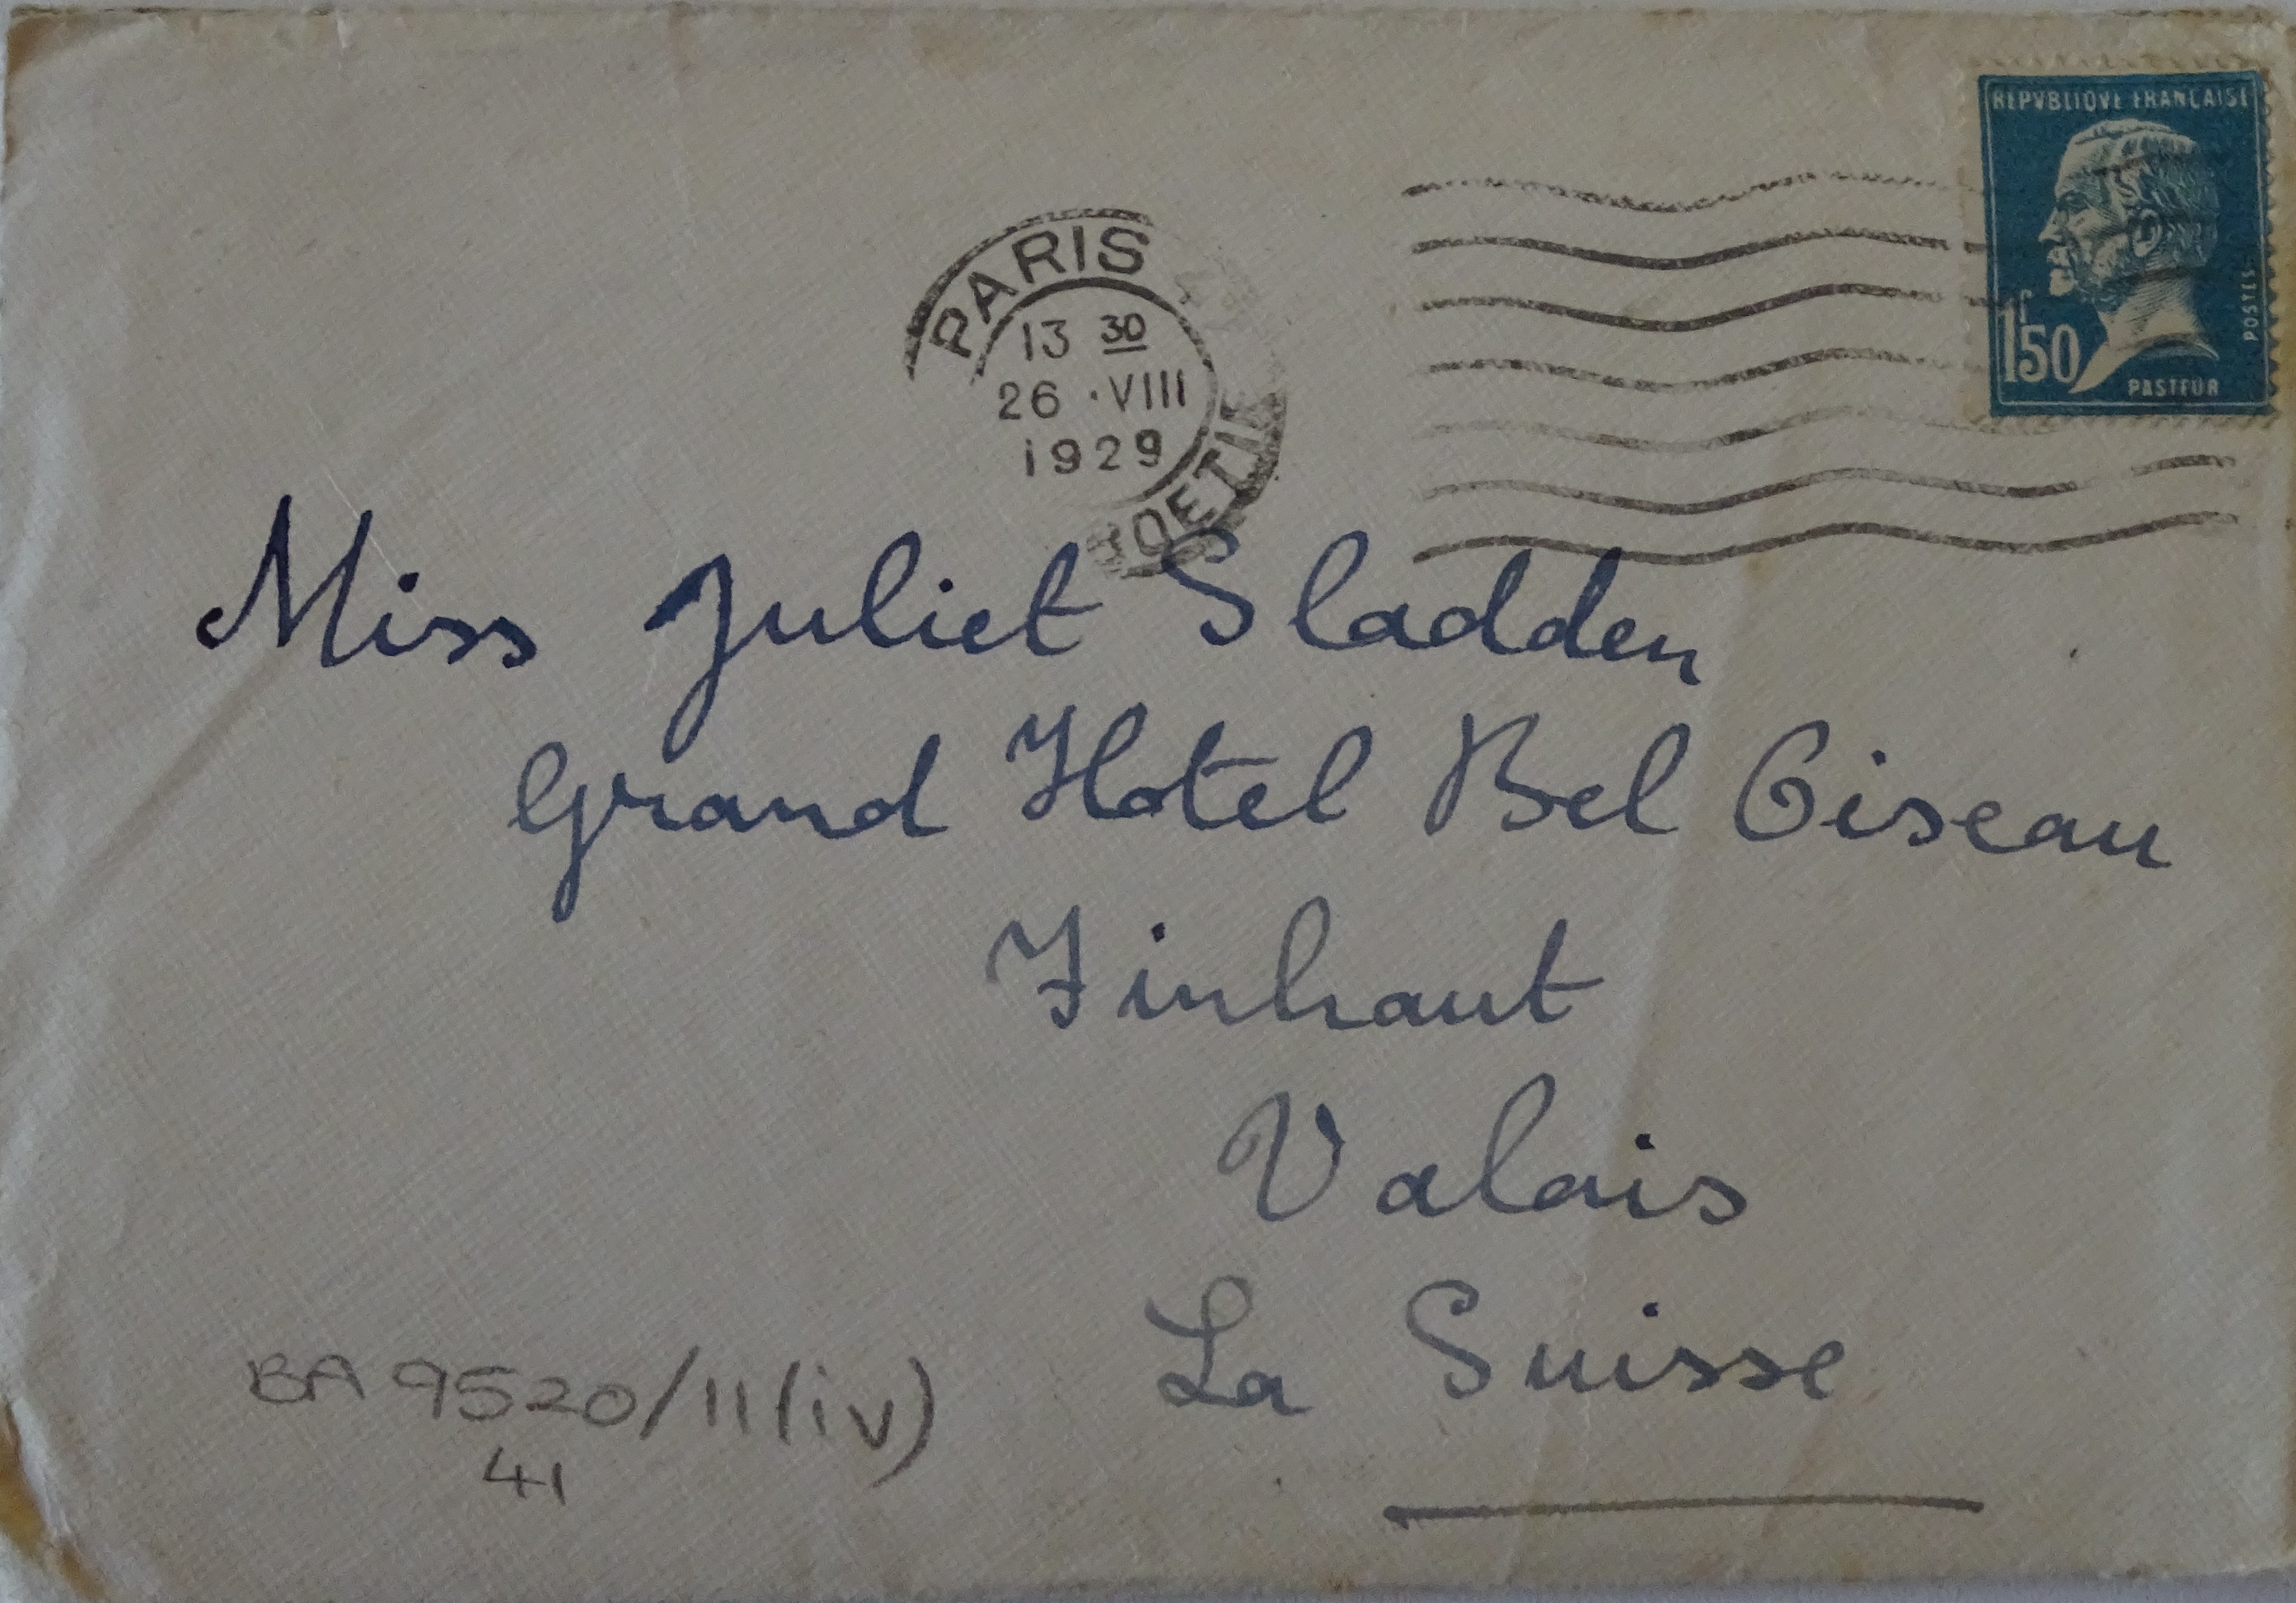 REPVBLIQVE FRANÇAISE
1f50
POSTES
PASTEUR
PARIS
13 30
26 · VIII
1929
Miss Juliet Sladden
Grand Hotel Bel Oiseau
Finhaut
Valais
La Suisse
BA 9520/11(iv)
41